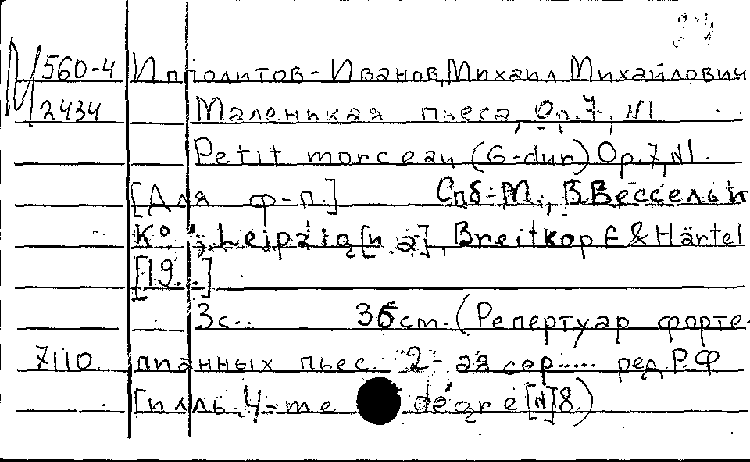 М 560-4 Ипполитов-Иванов, Михаил Михайлович
2434 Маленькая пьеса, Op.7, N1
Petit morceau (G-dur) Op.7, N1.
[Для ф-п.] Спб-М., В.Бессель и
Kº; Leipzig [и др.], Breitkopf & Härtel
[19..]
3с. 36 cm. (Репертуар форте-
7110 пианных пьес. 2-ая сер..... ред. Р.Ф
Гилль. 4-me degré [N]8.)